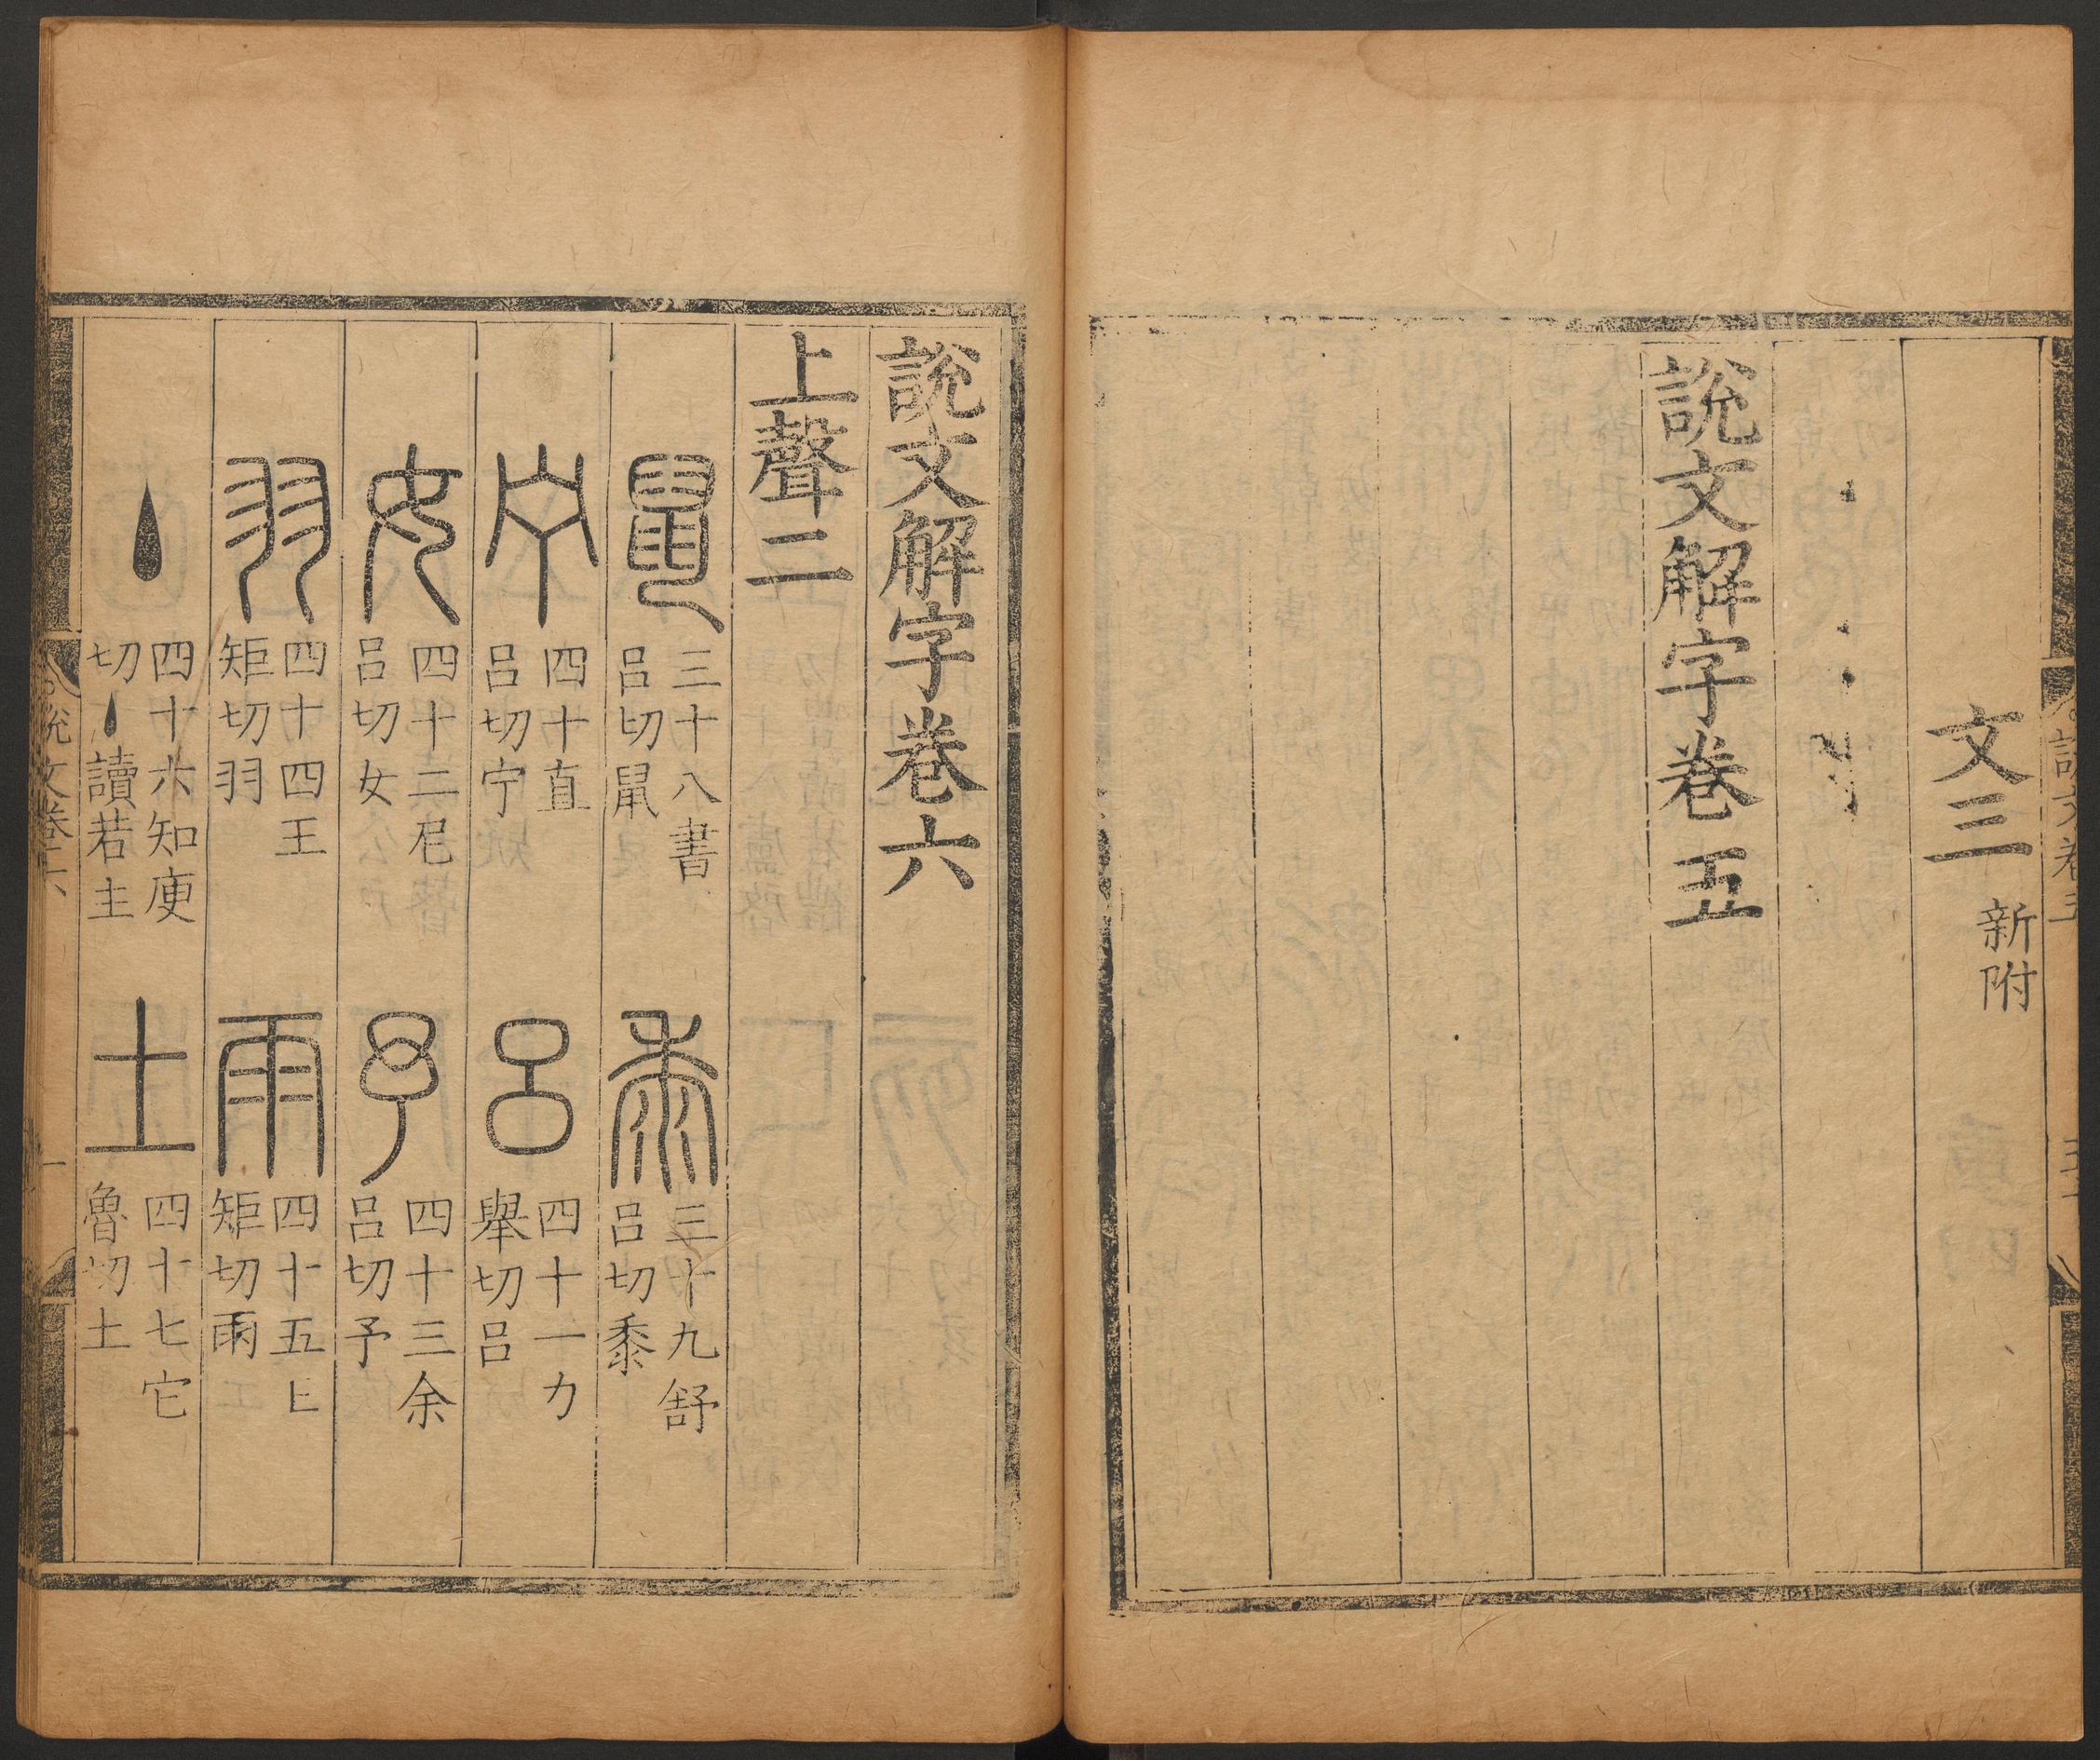 文三 新附
說文解字卷五
說文解字卷六
上聲二
鼠 三十八書呂切鼠 黍 三十九舒呂切黍
宁 四十直呂切宁 呂 四十一力舉切呂
女 四十二尼呂切女 予 四十三余呂切予
羽 四十四王矩切羽 雨 四十五𠤎矩切雨
丶 四十六知庾切丶讀若主 土 四十七它魯切土
說文卷六 一